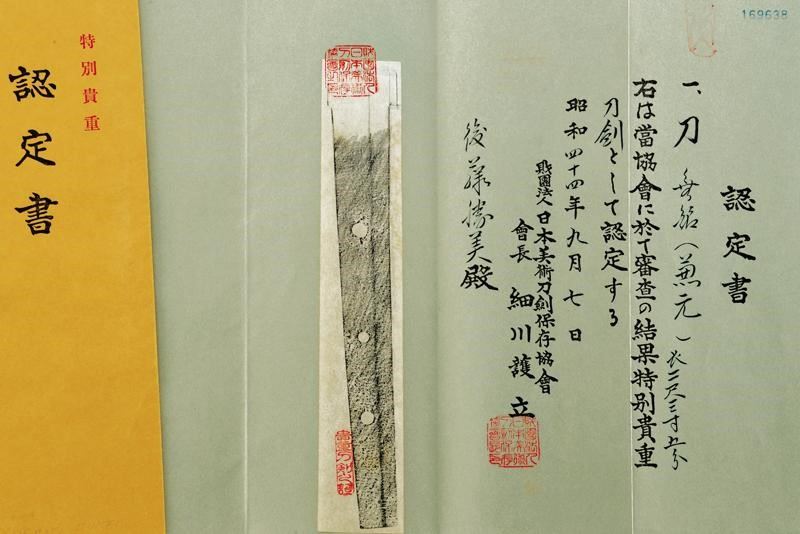 169638
認定書
一、刀 無銘(兼元)長二尺三寸五分
右は當協會に於て審査の結果特別貴重
刀劍として認定する
昭和四十四年九月七日
財團法人日本美術刀劍保存協會
會長 細川護立
後藤勝美殿
特別貴重
認定書